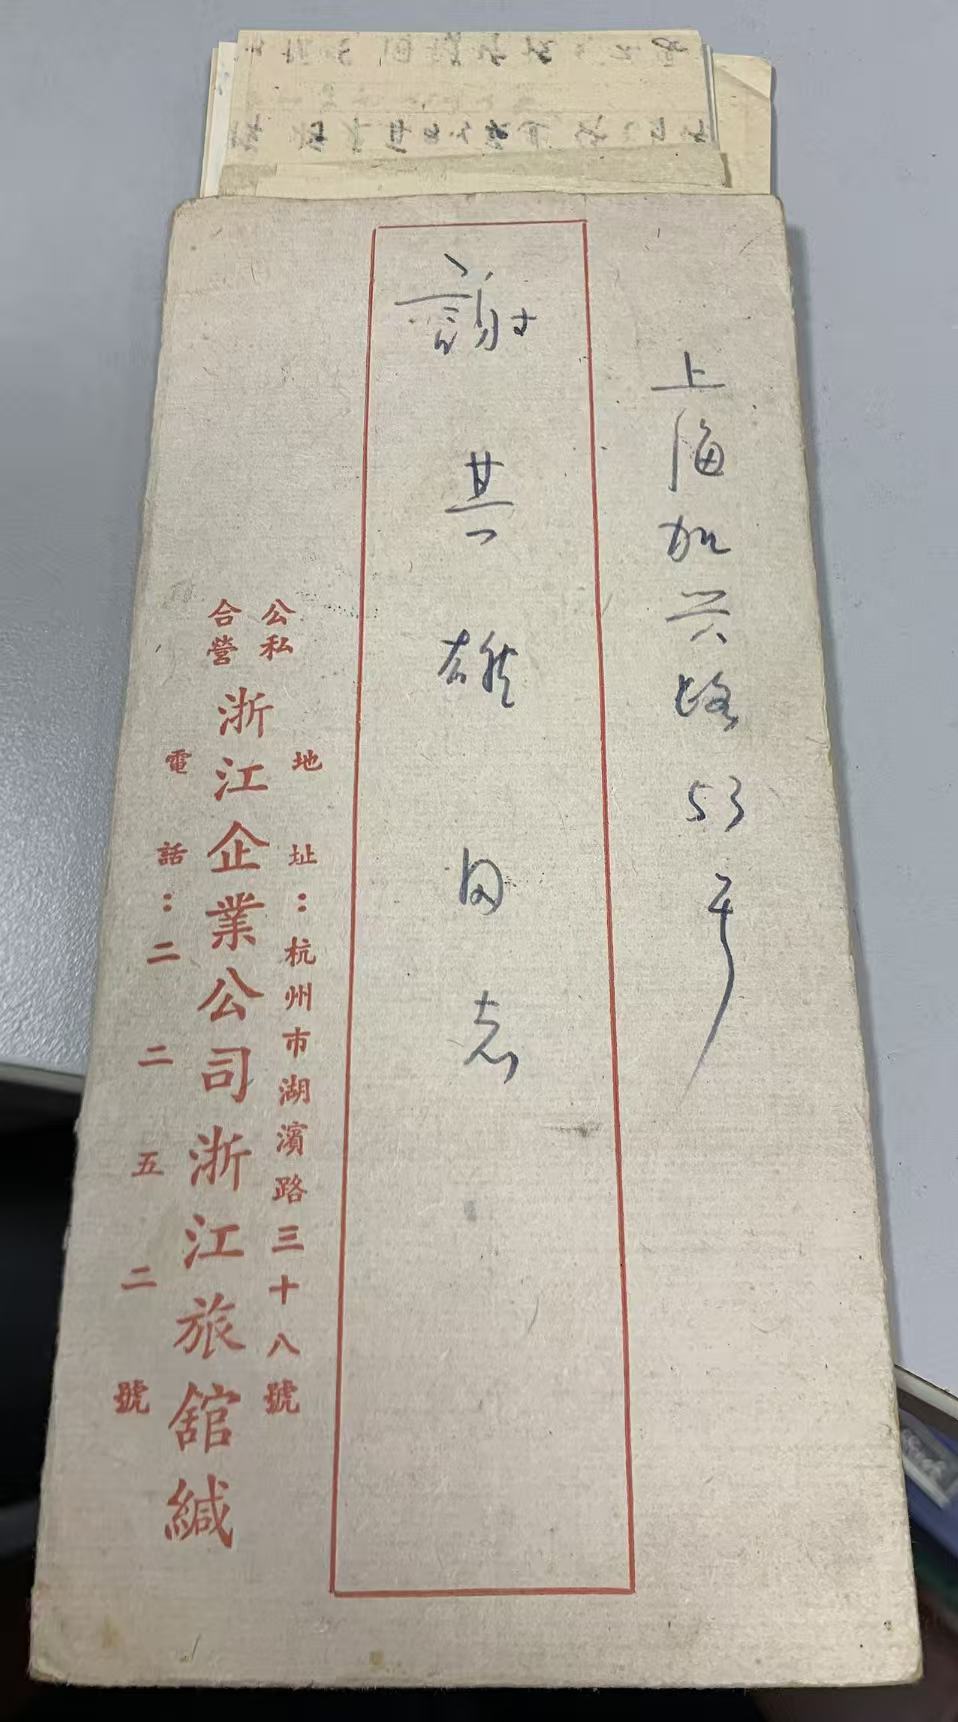 上海加兴路53号
謝其雄同志
地址：杭州市湖濱路三十八號
公私合營浙江企業公司浙江旅舘緘
電話：二二五二號